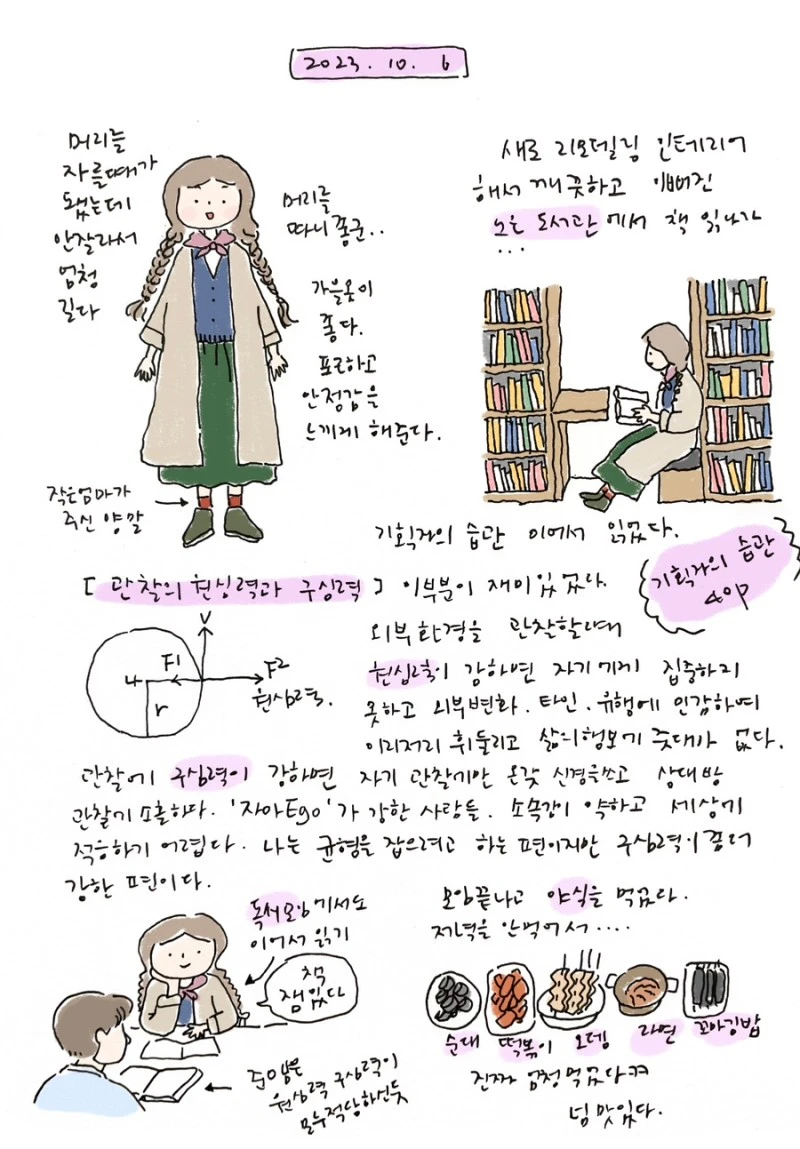 2023. 10. 6
머리를
자를때가
됐는데
안잘라서
엄청
길다
머리를
따니 좋군..
가을옷이
좋다.
포근하고
안정감을
느끼게 해준다.
작은엄마가
주신 양말
새로 리모델링 인테리어
해서 깨끗하고 이뻐진
도서관에서 책 읽다가
...
기획자의 습관 이어서 읽었다.
[ 관찰의 원심력과 구심력 ] 이부분이 재미있었다.
기획자의 습관
40p
V
F1
F2
r
원심력.
외부환경을 관찰할때
원심력이 강하면 자기에게 집중하지
못하고 외부변화. 타인. 유행에 민감하며
이리저리 휘둘리고 삶의행보에 줏대가 없다.
관찰에 구심력이 강하면 자기 관찰에만 온갖 신경을쓰고 상대방
관찰에 소홀하다. '자아Ego'가 강한 사람들. 소속감이 약하고 세상에
적응하기 어렵다. 나는 균형을 잡으려고 하는 편이지만 구심력이 좀더
강한 편이다.
독서모임에서도
이어서 읽기
책
잼있다
원심력 구심력이
모두적당하신듯
모임끝나고 야식을 먹었다.
저녁을 안먹어서....
순대
떡볶이
오뎅
라면
꼬마김밥
진짜 엄청먹었다ㅋㅋ
넘 맛있다.